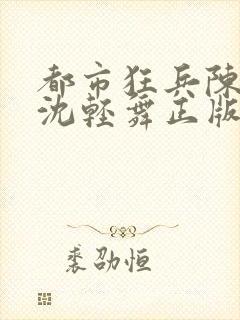 都市狂兵陳
沈輕舞正版
裘劭恒